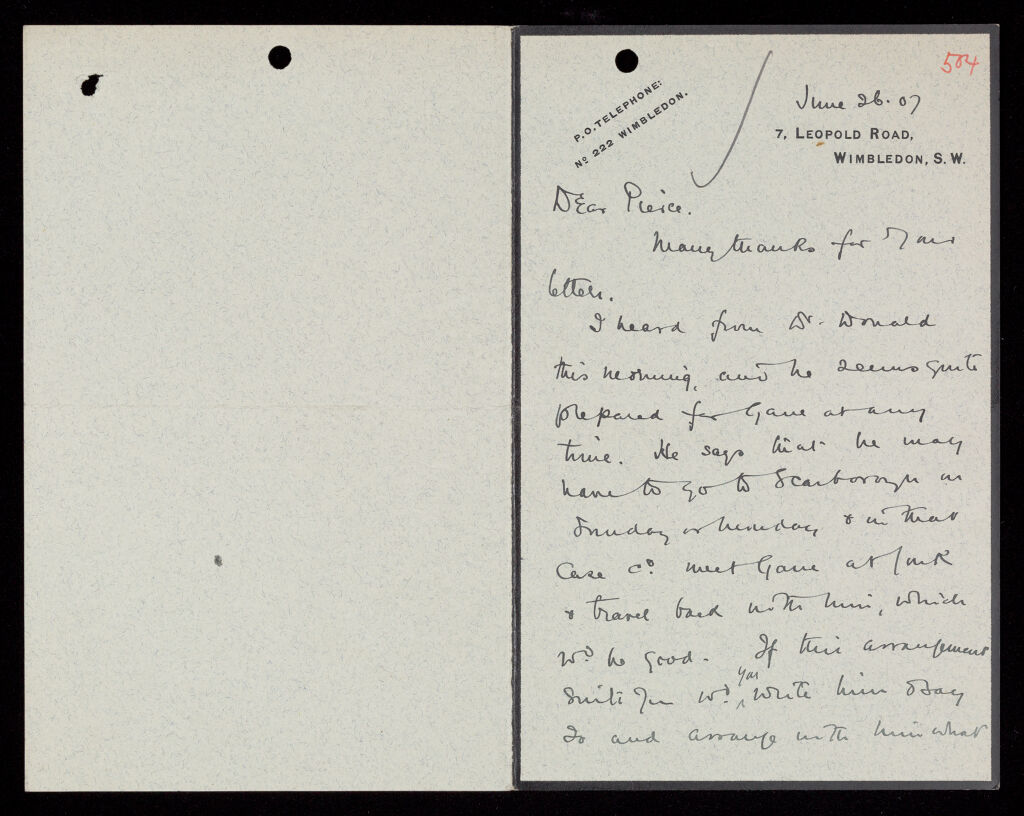 504
P.O. TELEPHONE:
Nº 222 WIMBLEDON.
June 26. 07
7, LEOPOLD ROAD,
WIMBLEDON, S.W.
Dear Pierce.
Many thanks for your
letters.
I heard from Dr. Donald
this morning, and he seems quite
prepared for Gane at any
time. He says that he may
have to go to Scarborough on
Sunday or Monday & in that
case cd. meet Gane at York
& travel back with him, which
wd. be good. If this arrangement
suits you wd. you write him & say
so and arrange with him what